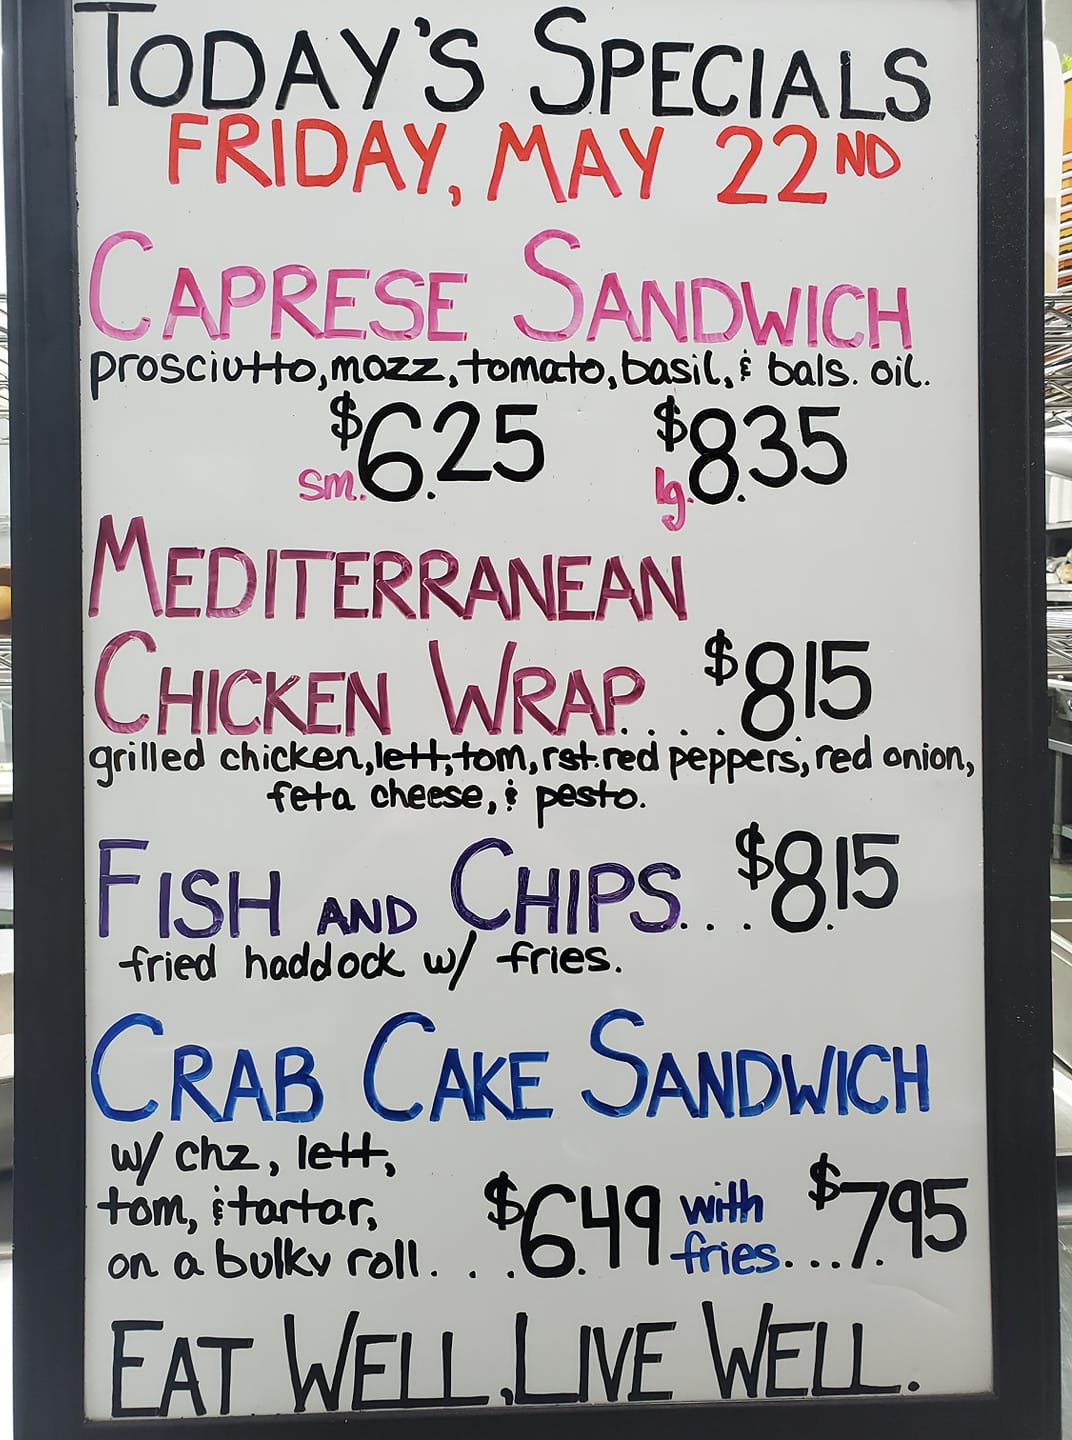 TODAY'S SPECIALS
FRIDAY, MAY 22ND
CAPRESE SANDWICH
prosciutto, mozz, tomato, basil, & bals. oil.
sm. $6.25 lg. $8.35
MEDITERRANEAN
CHICKEN WRAP.... $8.15
grilled chicken, lett, tom, rst. red peppers, red onion,
feta cheese, & pesto.
FISH AND CHIPS... $8.15
fried haddock w/ fries.
CRAB CAKE SANDWICH
w/ chz, lett,
tom, & tartar,
on a bulky roll. ... $6.49 with fries... $7.95
EAT WELL, LIVE WELL.